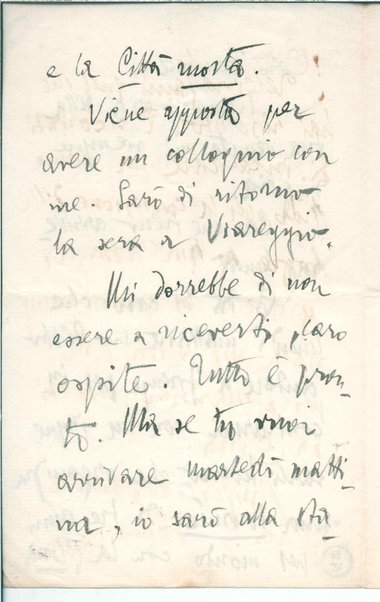 e la Città morta.
Viene apposta per
avere un colloquio con
me. Sarò di ritorno
la sera a Viareggio.
Mi dorrebbe di non
essere a riceverti, caro
ospite. Tutto è pron-
to. Ma se tu vuoi
arrivare martedì matti-
na, io sarò alla sta-